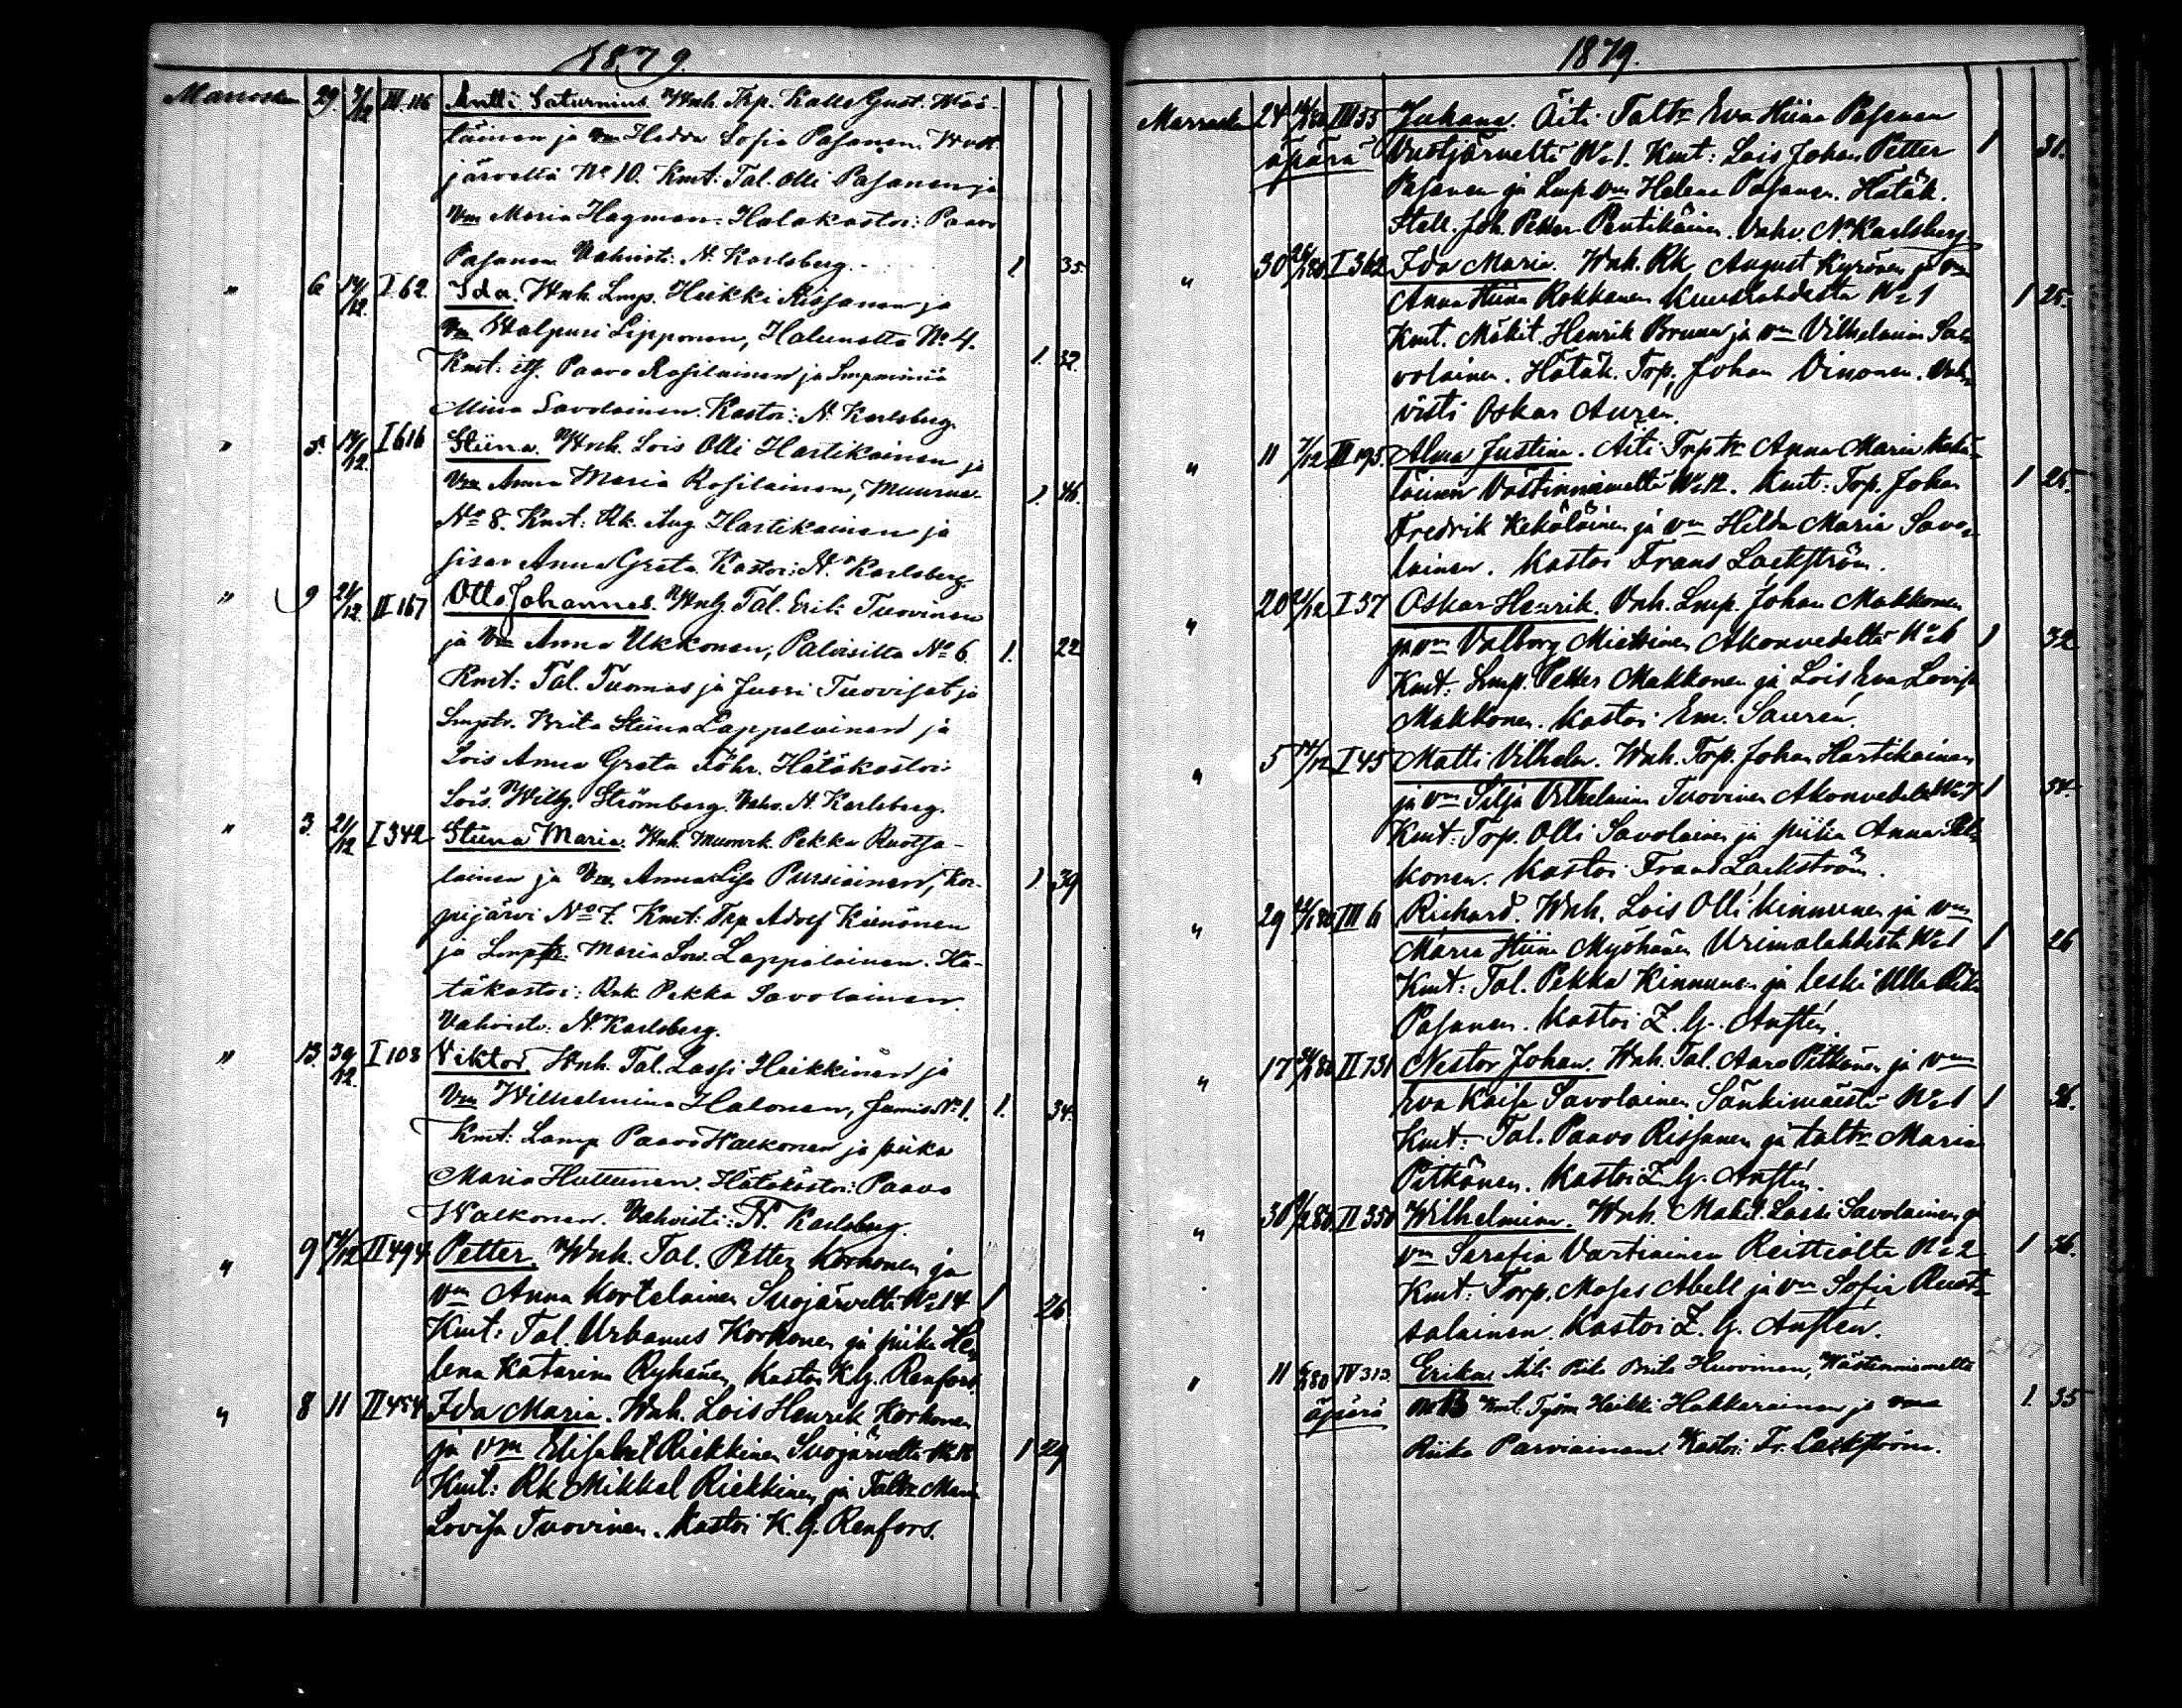 1879.
Marrask. 29. 7/12 III. 116 Antti Saturnius. Wnh. Trp. Kalle Gust. Wää-
täinen ja Vm Hedda Sofia Pasanen Wuot-
järveltä No 10. Kmt: Tal. Olli Pasanen ja
Vm Maria Hagman. Hätäkastoi: Paavo
Pasanen. Vahvisti: N. Karlsberg. 1 35.
" 6 14/12. I 62. Ida. Wnh. Lmp. Heikki Rissanen ja
Vm Walpuri Lipponen, Halunalta No 4.
Kmt: its. Paavo Rosilainen ja Lmp miniä 1. 32.
Miina Savolainen. Kastoi: N. Karlsberg.
" 5. 14/12. I 616 Stiina. Wnh. Lois Olli Hartikainen ja
Vm Anna Maria Rosilainen, Muurue- 1. 46.
No 8. Kmt: Rk. Aug. Hartikainen ja
sisar Anna Greta. Kastoi: N. Karlsberg.
" 9 21/12. II 167 Otto Johannes. Wnh. Tal. Erik Tuovinen
ja Vm Anna Ukkonen, Paloisilta No 6. 1. 22
Kmt: Tal. Tuomas ja Jussi Tuoviset ja
Lmptr. Brita Stiina Lappalainen ja
Lois Anna Greta Röhr. Hätäkastoi:
Lois. Wilh. Strömberg. Vahv. N. Karlsberg.
" 3. 21/12 I 342 Stiina Maria. Wnh. Muonrk. Pekka Ruotsa-
lainen ja Vm Anna Lisa Pursiainen, Kor- 1. 39
pijärvi No 7. Kmt: Trp Adolf Kinnunen
ja Lmptr. Maria Lov. Lappalainen. Hä-
täkastoi: Rnk. Pekka Savolainen.
Vahvisti. N. Karlsberg.
" 13. 30/12. I 108 Viktor. Wnh. Tal. Lassi Heikkinen ja
Vm Wilhelmina Halonen, Jumis No 1. 1. 34.
Kmt: Lamp Paavo Walkonen ja piika
Maria Huttunen. Hätäkastoi: Paavo
Walkonen. Vahvisti: N. Karlsberg.
" 9 14/12 II 494. Petter. Wnh. Tal. Petter Korhonen ja
vm Anna Kortelainen Suojärveltä No 14 1 26.
Kmt: Tal. Urbanus Korhonen ja piika He-
lena Katarina Ryhänen, Kastoi K. G. Renfors.
" 8 11 II 454 Ida Maria. Wnh. Lois Henrik Korhonen
ja vm Elisabet Riekkinen Suojärveltä No 18 1 29
Kmt: Rk Mikkel Riekkinen ja Taltr. Maria
Lovisa Tuovinen. Kastoi K. G. Renfors.
1879.
Marrask. 24 III 55 Juhana. Äiti Taltr Eva Stiina Pasanen
äpärä Vuotjärveltä No 1. Kmt: Lois Johan Petter 1 31.
Pasanen ja Lmp. vm Helena Pasanen. Hätäk.
Stell. Joh. Petter Pentikäinen. Vahv. N. Karlsberg
" 30 I 362 Ida Maria. Wnh. Rk. August Kyrönen ja vm
Anna Stiina Rokkanen Kuuslahdesta No 1 1 25.
Kmt. Mäkit. Henrik Brunen ja vm Vilhelmina Sa-
volainen. Hätäk. Torp. Johan Oinonen. Vah-
visti Oskar Auren.
" 11 7/12 III 195. Alma Justina. Äiti Trp tr Anna Maria Kekä-
läinen Västinniemeltä No 12. Kmt: Torp. Johan 1 25.
Fredrik Kekäläinen ja vm Hilda Maria Savo-
lainen. Kastoi Frans Lackström.
" 20 21/12 I 37 Oskar Henrik. Vnh. Lmp. Johan Makkonen
ja vm Valborg Miettinen Akonvedeltä No 6 1 32
Kmt: Lmp. Petter Makkonen ja Lois Eva Lovisa
Makkonen. Kastoi Em. Sauren.
" 5 14/12 I 45 Matti Vilhelm. Wnh. Torp. Johan Hartikainen
ja vm Silja Vilhelmina Tuovinen Akonvedeltä No 7 1 34.
Kmt: Torp. Olli Savolainen ja piika Anna
konen. Kastoi Frans Lackström.
" 29 III 6 Richard. Wnh. Lois Olli Kinnunen ja vm
Maria Stiina Myöhänen Urimolahdesta No 1 1 26
Kmt: Tal. Pekka Kinnunen ja leski Ulla Rika
Pasanen. Kastoi Z. G. Anstén.
" 17 II 731 Nestor Johan. Wnh. Tal. Aaro Pitkänen ja vm
Eva Kaisa Savolainen Sänkimäestä No 1 1 36.
Kmt: Tal. Paavo Rissanen ja taltr Maria
Pitkänen. Kastoi Z. G. Anstén.
" 30 II 350 Wilhelmina. Wnh. Mäkit. Lassi Savolainen ja
vm Serafia Vartiainen Reittiöltä No 2 1 36.
Kmt: Torp. Moses Abell ja vm Sofia Ruot-
salainen. Kastoi Z. G. Anstén.
" 11 IV 313. Erika. Äiti Piika Brita Huovinen, Västinniemeltä
äpärä No 13 Kmt. Työm. Heikki Hakkarainen ja vmo 1. 35
Riika Parviainen. Kastoi: Fr. Lackström.